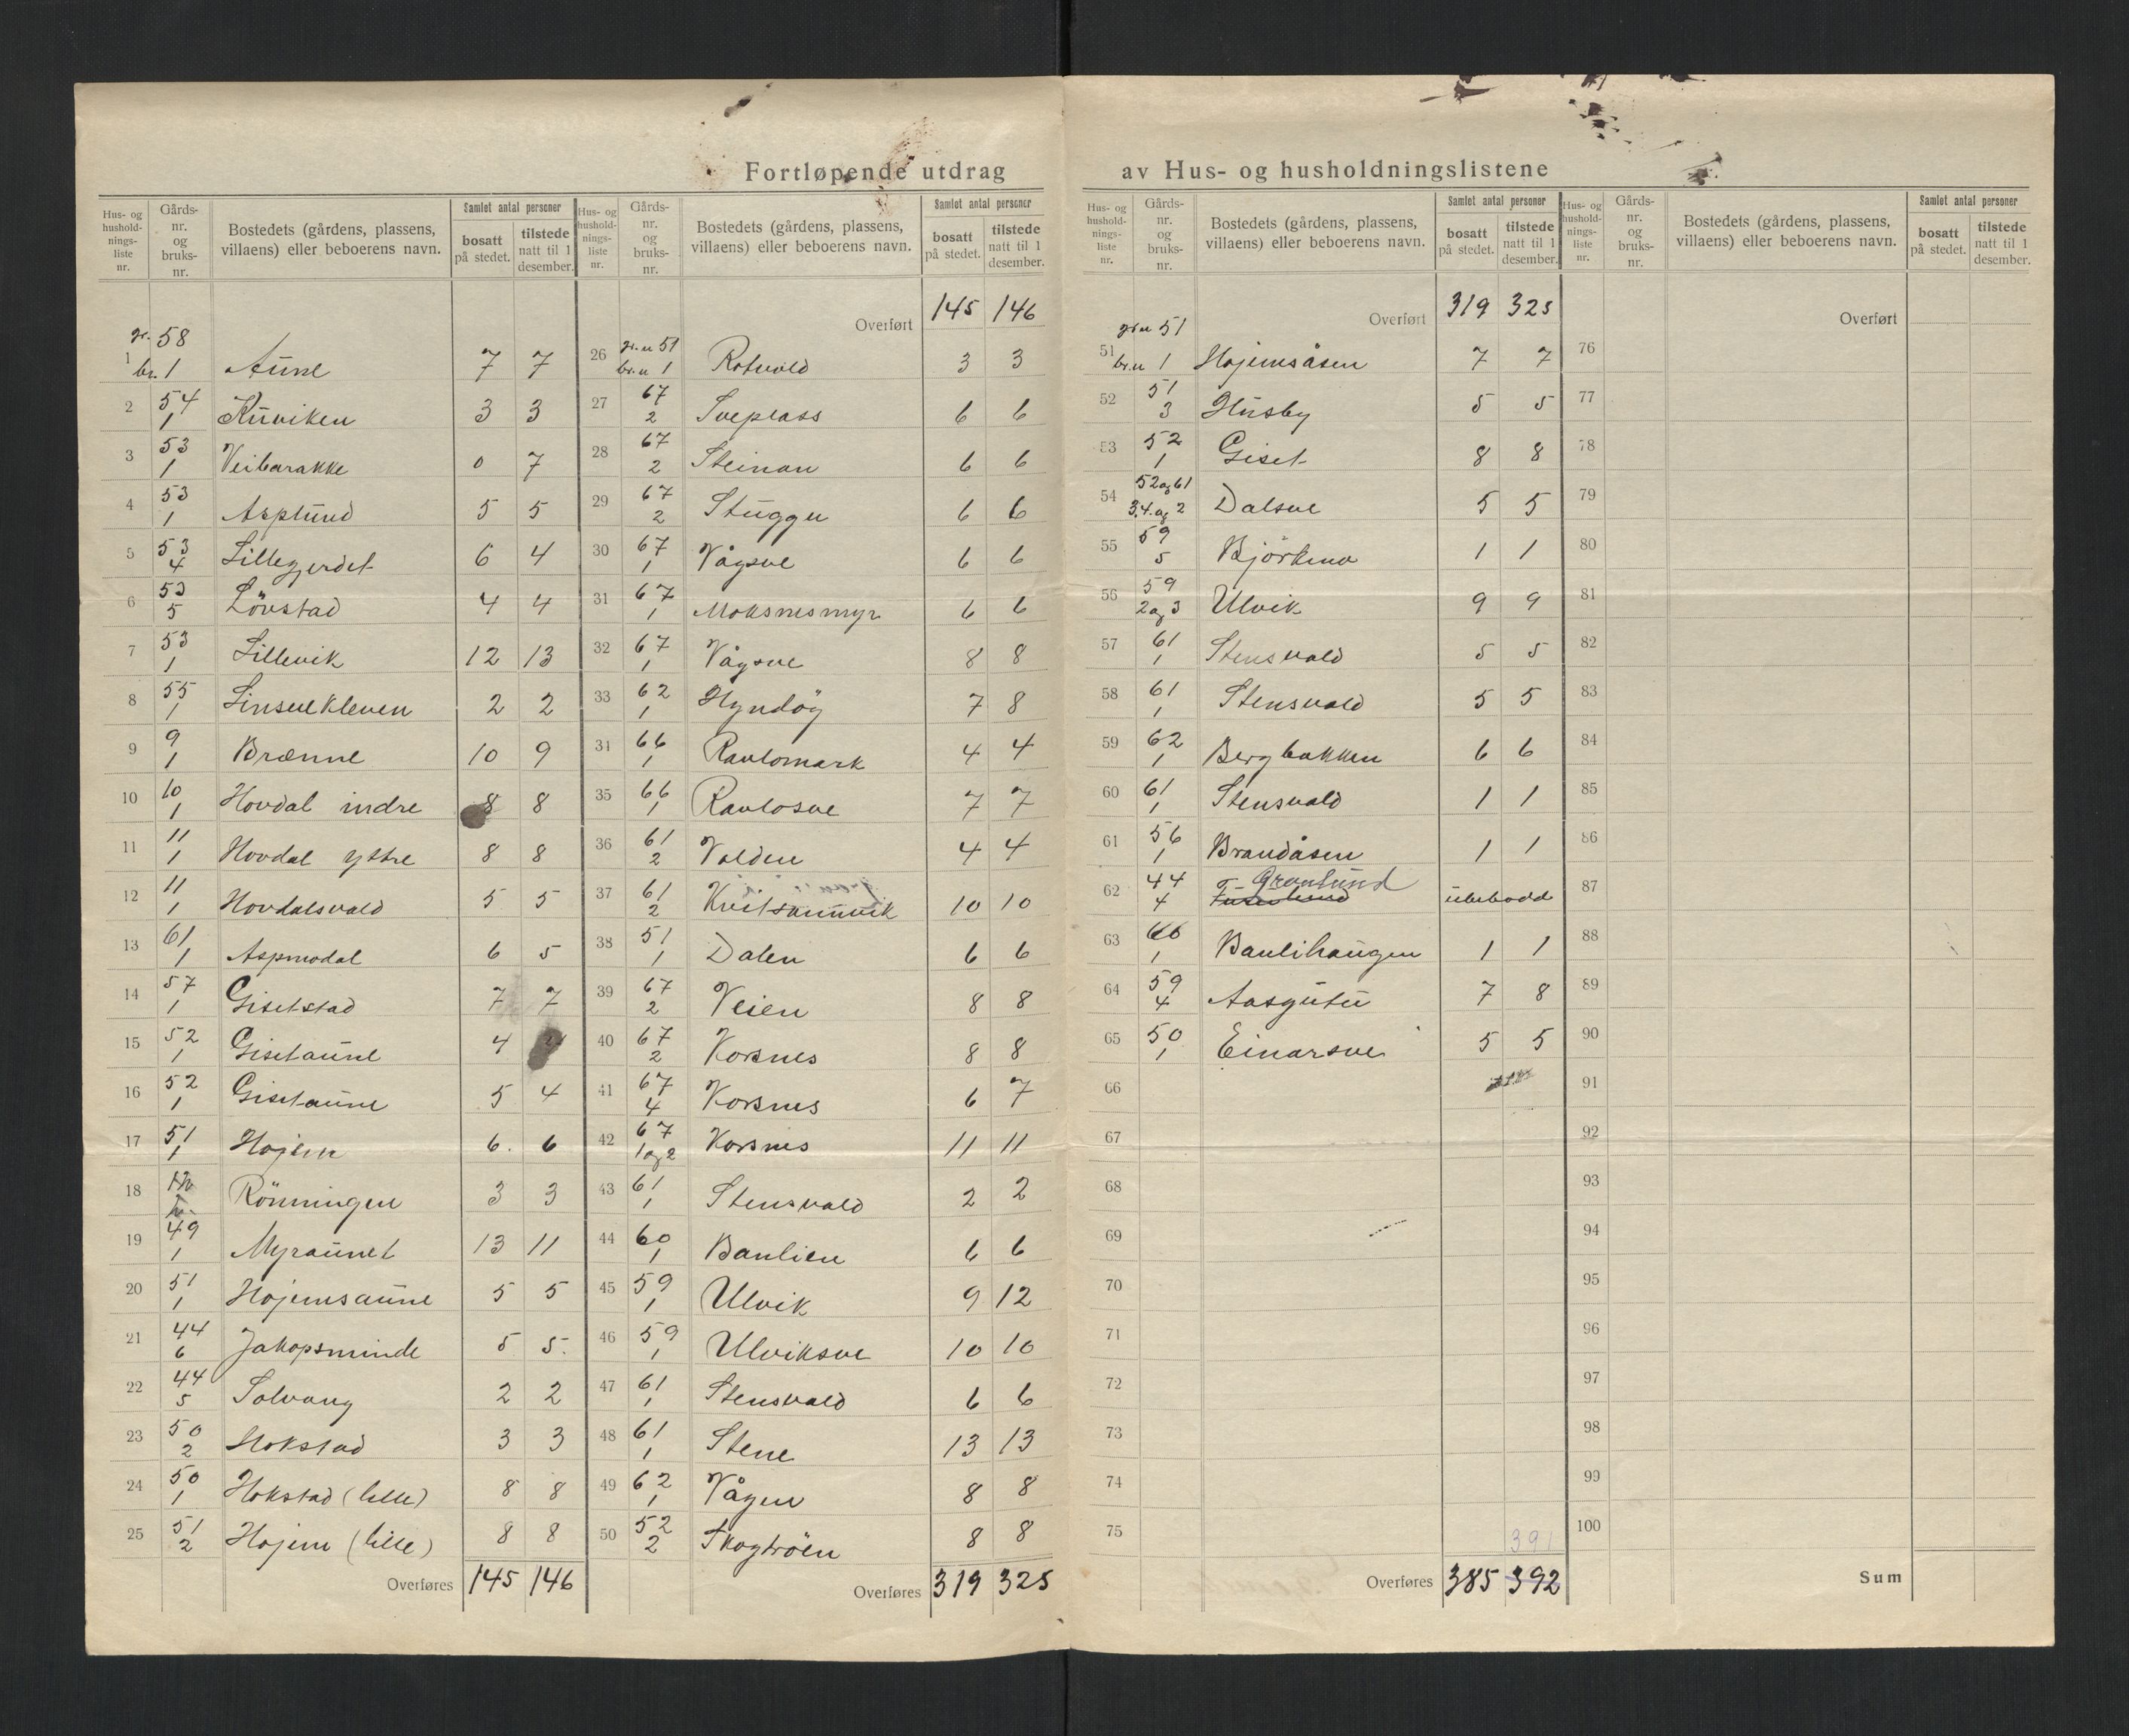 Fortløpende utdrag av Hus- og husholdningslistene
Hus- og hushold- nings- liste nr. | Gårds- nr. og bruks- nr. | Bostedets (gårdens, plassens, villaens) eller beboerens navn. | Samlet antal personer | bosatt på stedet. | tilstede natt til 1 desember.
1 | gr. 58 br. 1 | Aune | 7 | 7
2 | 54 1 | Kuviken | 3 | 3
3 | 53 1 | Veibarakke | 0 | 7
4 | 53 1 | Asplund | 5 | 5
5 | 53 4 | Lillegjerdet | 6 | 4
6 | 53 5 | Lövstad | 4 | 4
7 | 53 1 | Lillevik | 12 | 13
8 | 55 1 | Linsuekleven | 2 | 2
9 | 9 1 | Brænne | 10 | 9
10 | 10 1 | Hovdal indre | 8 | 8
11 | 11 1 | Hovdal ytre | 8 | 8
12 | 11 1 | Hovdalsvald | 5 | 5
13 | 61 1 | Aspmodal | 6 | 5
14 | 57 1 | Gisetstad | 7 | 7
15 | 52 1 | Gisetaune | 4
16 | 52 1 | Gisetaune | 5 | 4
17 | 51 1 | Hojem | 6. | 6
18 | Rönningen | 3 | 3
19 | 49 1 | Myraunet | 13 | 11
20 | 51 1 | Hojemsaune | 5 | 5
21 | 44 6 | Jakopsminde | 5 | 5.
22 | 44 5 | Solvang | 2 | 2
23 | 50 2 | Hokstad | 3 | 3
24 | 50 1 | Hokstad (lille) | 8 | 8
25 | 51 2 | Hojem (lille) | 8 | 8
Overføres | 145 | 146
Hus- og hushold- nings- liste nr. | Gårds- nr. og bruks- nr. | Bostedets (gårdens, plassens, villaens) eller beboerens navn. | Samlet antal personer | bosatt på stedet. | tilstede natt til 1 desember.
Overført | 145 | 146
26 | gr. n 51 br. n 1 | Rotvold | 3 | 3
27 | 67 2 | Sveplass | 6 | 6
28 | 67 2 | Steinan | 6 | 6
29 | 67 2 | Stuggu | 6 | 6
30 | 67 1 | Vågsve | 6 | 6
31 | 67 1 | Moksnesmyr | 6 | 6
32 | 67 1 | Vågsve | 8 | 8
33 | 62 1 | Hyndöy | 7 | 8
34 | 66 1 | Ravlomark | 4 | 4
35 | 66 1 | Ravlosve | 7 | 7
36 | 61 2 | Volden | 4 | 4
37 | 61 2 | Kvitsaunvik | 10 | 10
38 | 51 1 | Dalen | 6 | 6
39 | 67 2 | Veien | 8 | 8
40 | 67 2 | Korsnes | 8 | 8
41 | 67 4 | Korsnes | 6 | 7
42 | 67 1 og 2 | Korsnes | 11 | 11
43 | 61 1 | Stensvald | 2 | 2
44 | 60 1 | Baulien | 6 | 6
45 | 59 1 | Ulvik | 9 | 12
46 | 59 1 | Ulviksve | 10 | 10
47 | 61 1 | Stensvald | 6 | 6
48 | 61 1 | Stene | 13 | 13
49 | 62 1 | Vågen | 8 | 8
50 | 52 2 | Skogtröen | 8 | 8
Overføres | 319 | 325
Hus- og hushold- nings- liste nr. | Gårds- nr. og bruks- nr. | Bostedets (gårdens, plassens, villaens) eller beboerens navn. | Samlet antal personer | bosatt på stedet. | tilstede natt til 1 desember.
Overført | 319 | 325
51 | gr n 51 br. n 1 | Hojemsåsen | 7 | 7
52 | 51 3 | Husby | 5 | 5
53 | 52 1 | Giset | 8 | 8
54 | 52 og 61 3.4. og 2 | Dalsve | 5 | 5
55 | 59 5 | Björkmo | 1 | 1
56 | 59 2 og 3 | Ulvik | 9 | 9
57 | 61 1 | Stensvald | 5 | 5
58 | 61 1 | Stensvald | 5 | 5
59 | 62 1 | Bergbakken | 6 | 6
60 | 61 1 | Stensvald | 1 | 1
61 | 56 1 | Brandåsen | 1 | 1
62 | 44 4 | Granlund | ubebodd
63 | 66 1 | Baulihaugen | 1 | 1
64 | 59 4 | Aasgutu | 7 | 8
65 | 50 1 | Einarsve | 5 | 5
66
67
68
69
70
71
72
73
74
75 | 391
Overføres | 385 | 392
Hus- og hushold- nings- liste nr. | Gårds- nr. og bruks- nr. | Bostedets (gårdens, plassens, villaens) eller beboerens navn. | Samlet antal personer | bosatt på stedet. | tilstede natt til 1 desember.
Overført
76
77
78
79
80
81
82
83
84
85
86
87
88
89
90
91
92
93
94
95
96
97
98
99
100
Sum